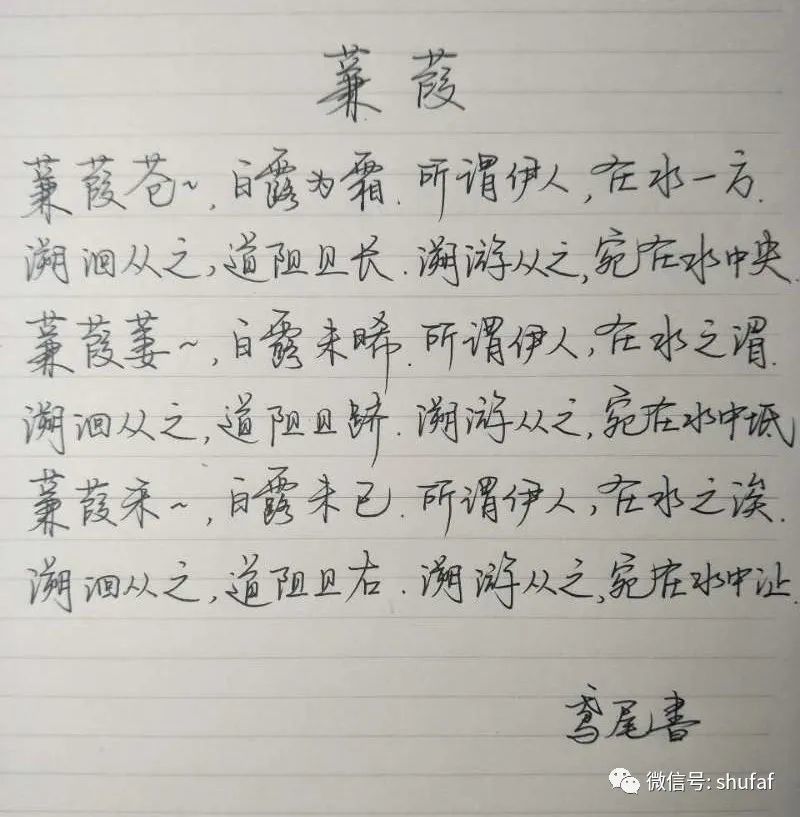 蒹葭
蒹葭苍~,白露为霜.所谓伊人,在水一方.
溯洄从之,道阻且长.溯游从之,宛在水中央.
蒹葭萋~,白露未晞.所谓伊人,在水之湄.
溯洄从之,道阻且跻.溯游从之,宛在水中坻
蒹葭采~,白露未已.所谓伊人,在水之涘.
溯洄从之,道阻且右.溯游从之,宛在水中沚.
鸢尾书
微信号: shufaf